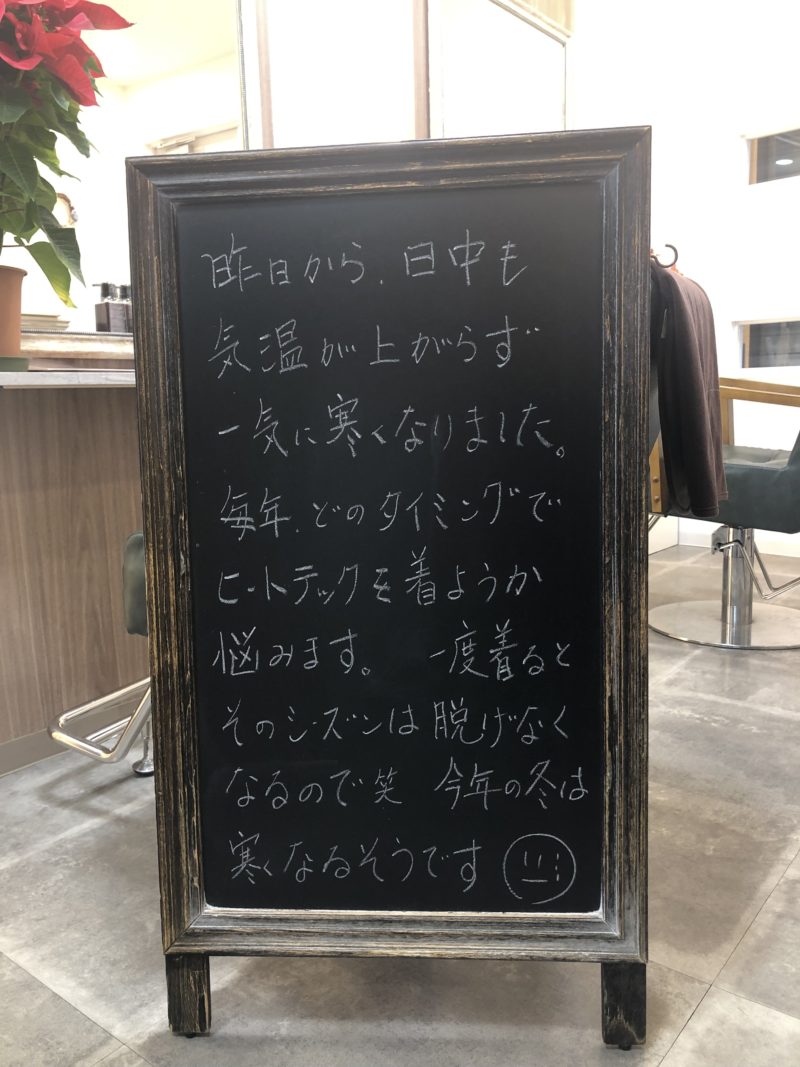 昨日から、日中も
気温が上がらず
一気に寒くなりました。
毎年、どのタイミングで
ヒートテックを着ようか
悩みます。 一度着ると
そのシーズンは脱げなく
なるので笑 今年の冬は
寒くなるそうです